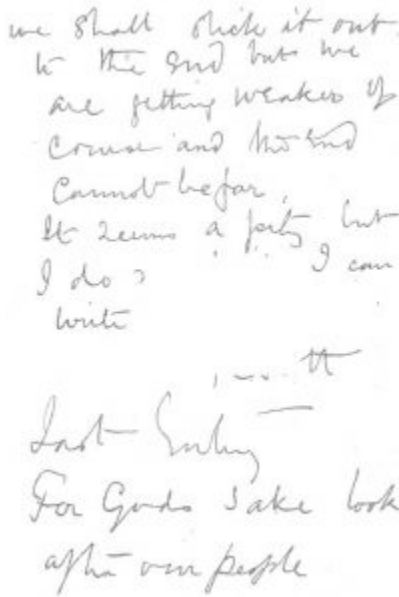 we shall stick it out
to the end but we
are getting weaker of
course and the end
cannot be far.
It seems a pity but
I do I can
write
Last Entry
For Gods sake look
after our people